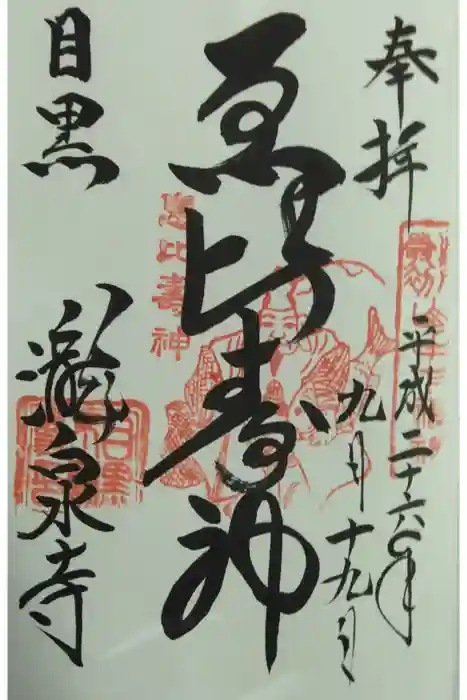 奉拝
平成二十六年
九月十九日
恵比寿神
恵比壽神
目黒
瀧泉寺